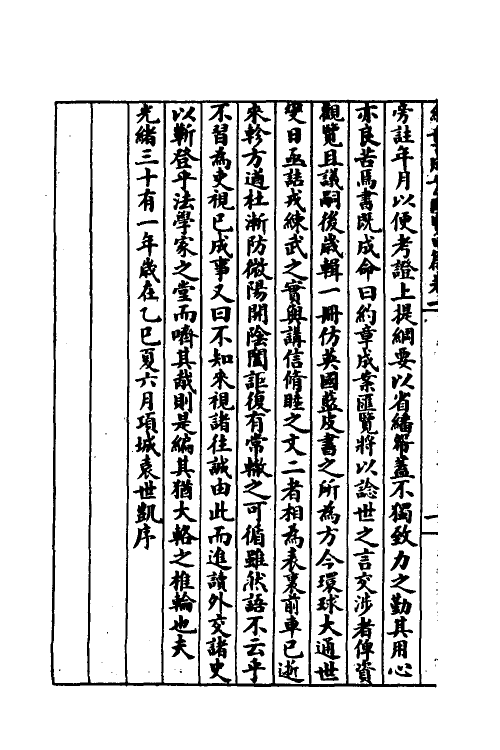 旁註年月以便考證上提綱要以省繙帑蓋不獨致力之勤其用心
亦良苦焉書既成命曰約章成案匯覽將以諗世之言交涉者俾資
觀覽且議嗣後歲輯一冊仿英國藍皮書之所為方今環球大通世
變日亟詰戎練武之實與講信脩睦之文二者相為表裏前車已逝
來軫方遒杜漸防微陽開陰闔詎復有常轍之可循雖然語不云乎
不習為吏視已成事又曰不知來視諸往誠由此而進讀外交諸史
以蘄登乎法學家之堂而嚌其胾則是編其猶大輅之椎輪也夫
光緒三十有一年歲在乙巳夏六月項城袁世凱序